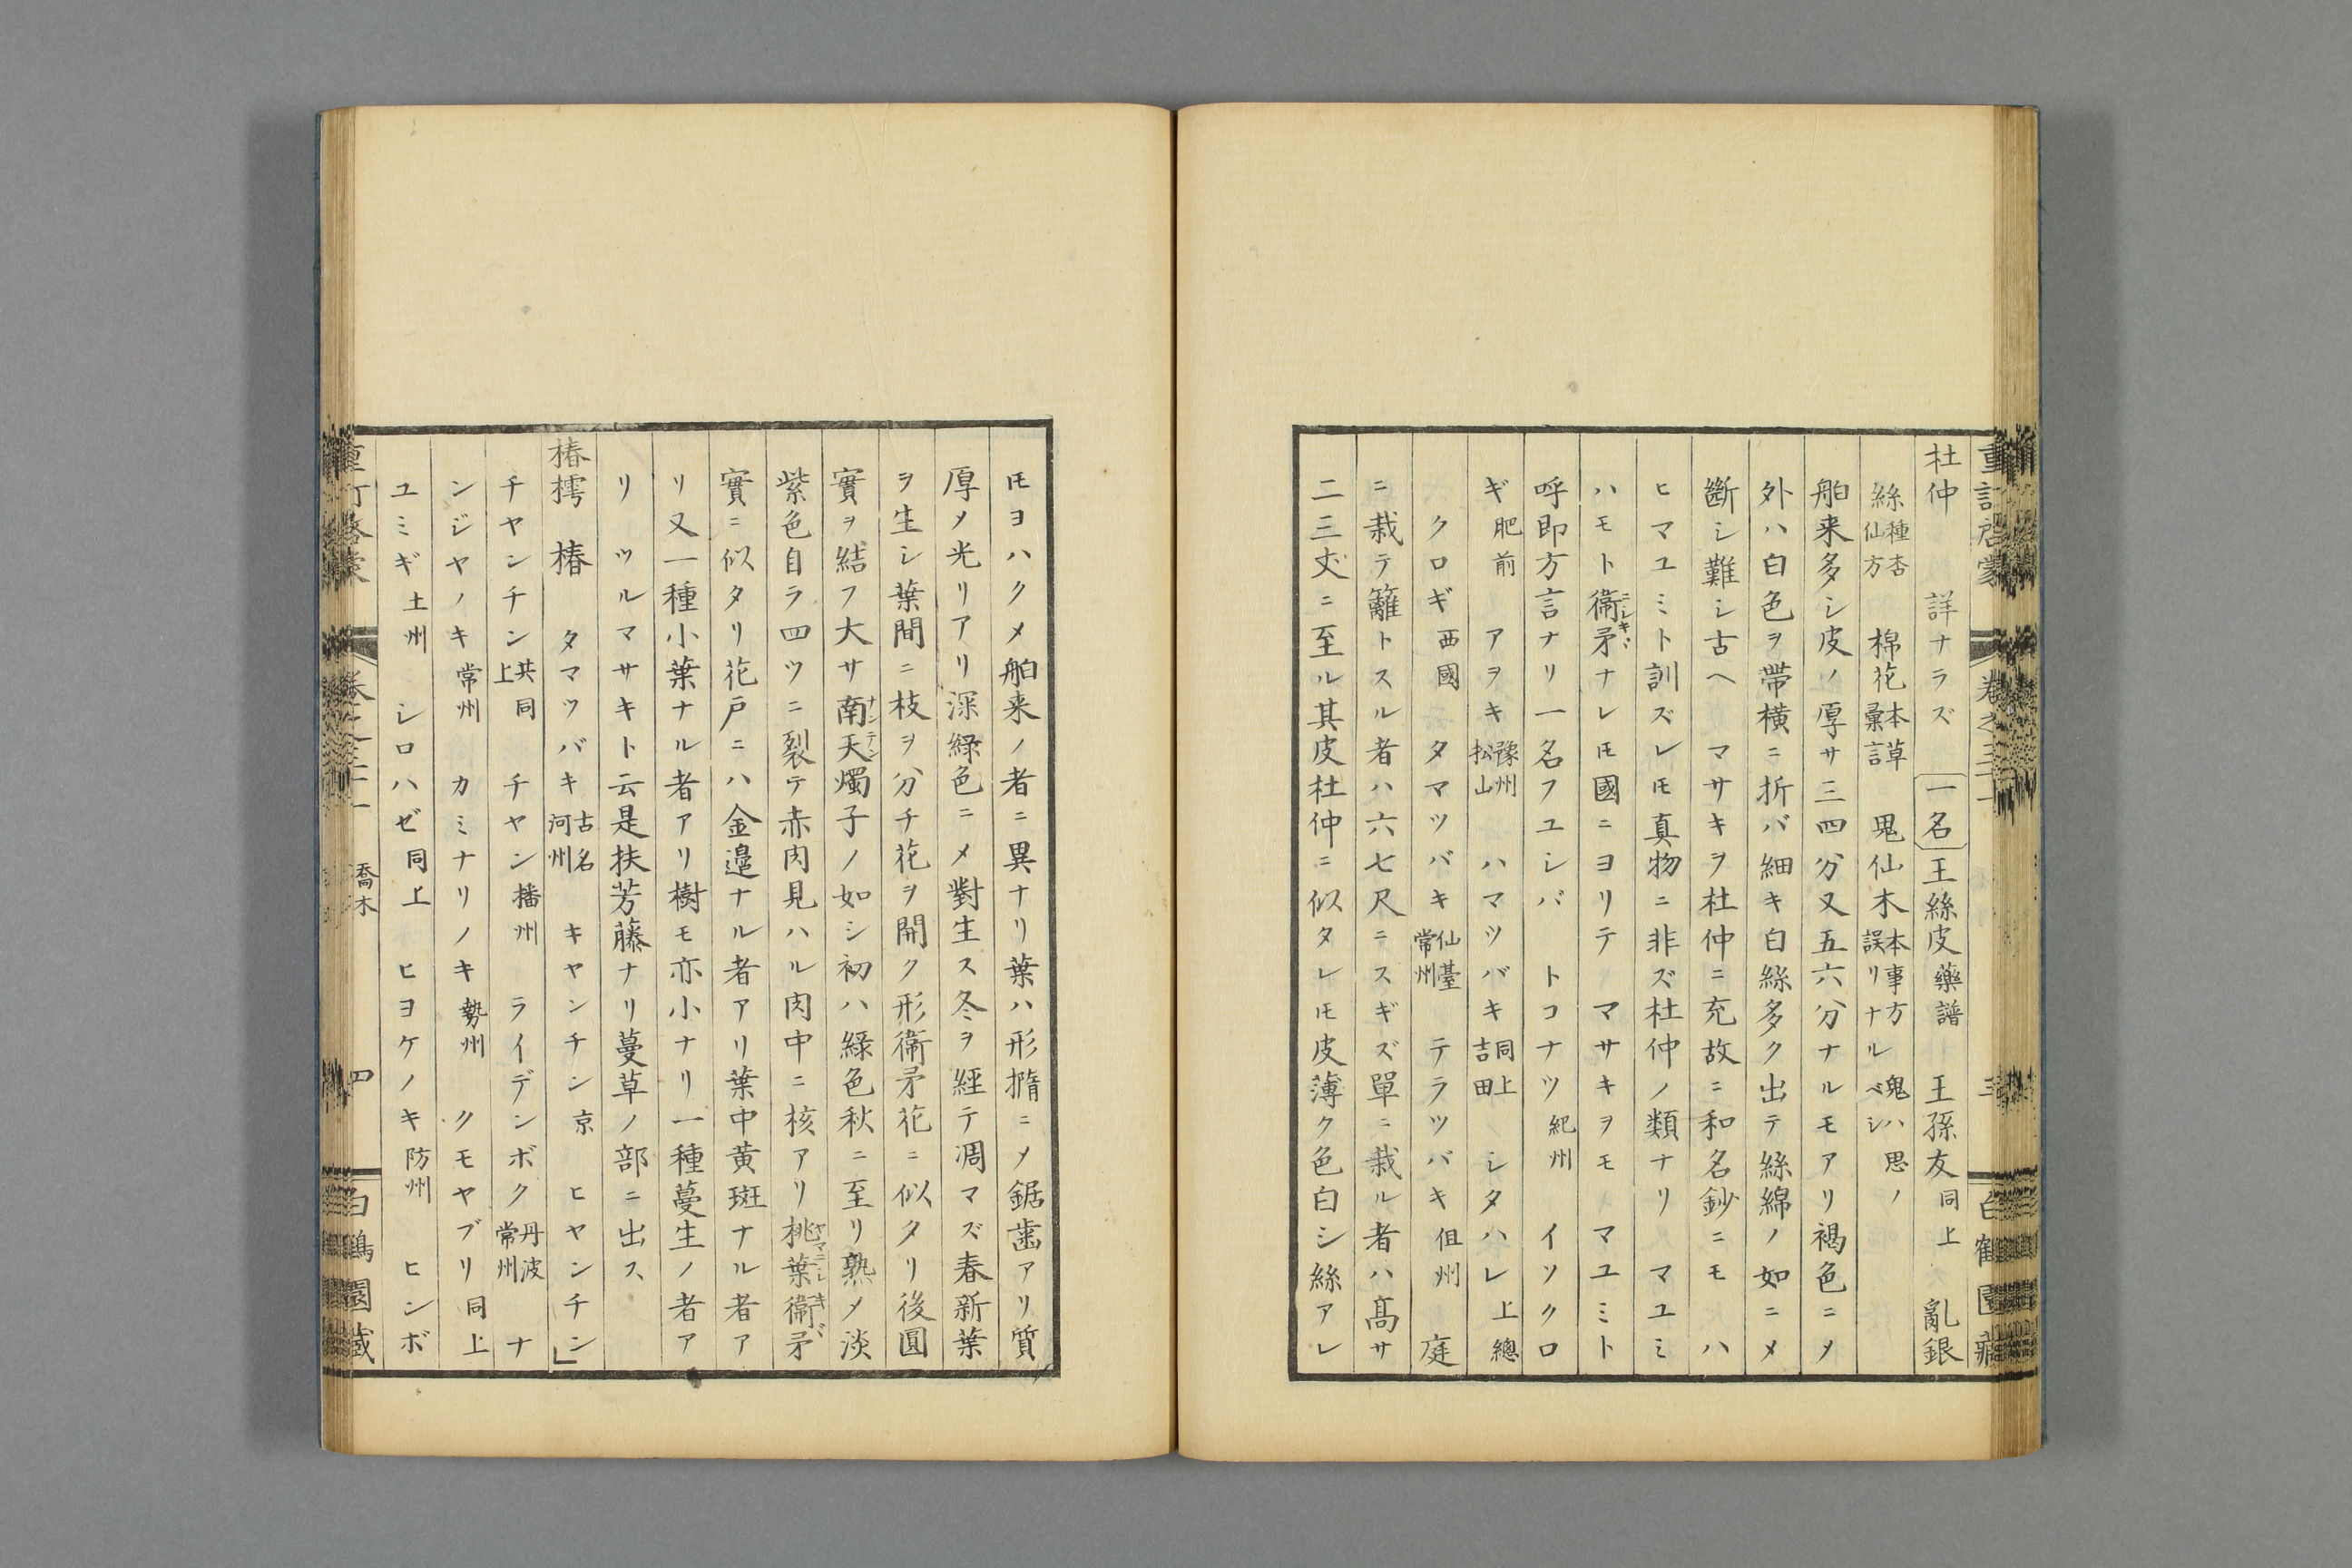 重訂啓蒙 卷之三十一 三 白鶴園藏
杜仲 詳ナラズ 一名 王絲皮 藥譜 王孫友 同上 亂銀
絲 種杏仙方 棉花 本草彙言 思仙木 本事方鬼ハ思ノ誤リナルベシ
舶来多シ皮ノ厚サ三四分又五六分ナルモアリ褐色ニメ
外ハ白色ヲ帯横ニ折バ細キ白絲多ク出テ絲綿ノ如ニメ
斷シ難シ古ヘ マサキヲ杜仲ニ充故ニ和名鈔ニモ ハ
ヒマユミト訓ズレ𪜈真物ニ非ズ杜仲ノ類ナリ マユミ
ハモト衞矛ニシキヾナレ𪜈國ニヨリテ マサキヲモ マユミト
呼即方言ナリ一名フユシバ トコナツ 紀州 イソクロ
ギ 肥前 アヲキ 豫州松山 ハマツバキ 同上吉田 シタハレ 上總
クロギ 西國 タマツバキ 仙臺常州 テラツバキ 但州 庭
ニ栽テ籬トスル者ハ六七尺ニスギズ單ニ栽ル者ハ髙サ
二三丈ニ至ル其皮杜仲ニ似タレ𪜈皮薄ク色白シ絲アレ
𪜈ヨハクメ舶来ノ者ニ異ナリ葉ハ形撱ニメ鋸歯アリ質
厚メ光リアリ深緑色ニメ對生ス冬ヲ經テ凋マズ春新葉
ヲ生シ葉間ニ枝ヲ分チ花ヲ開ク形衞矛花ニ似タリ後圓
實ヲ結フ大サ南天燭ナンテン子ノ如シ初ハ緑色秋ニ至リ熟メ淡
紫色自ラ四ツニ裂テ赤肉見ハル肉中ニ核アリ桃葉衞矛ヤマニシキヾ
實ニ似タリ花戸ニハ金邉ナル者アリ葉中黄斑ナル者ア
リ又一種小葉ナル者アリ樹モ亦小ナリ一種蔓生ノ者ア
リツルマサキト云是扶芳藤ナリ蔓草ノ部ニ出ス
椿樗 椿 タマツバキ 古名河州 キヤンチン 京 ヒヤンチン
チヤンチン 共同上 チヤン 播州 ライデンボク 丹波常州 ナ
ンジヤノキ 常州 カミナリノキ 勢州 クモヤブリ 同上
ユミギ 土州 シロハゼ 同上 ヒヨケノキ 防州 ヒンボ
重訂啓蒙 卷之三十一 喬木 四 白鶴園藏